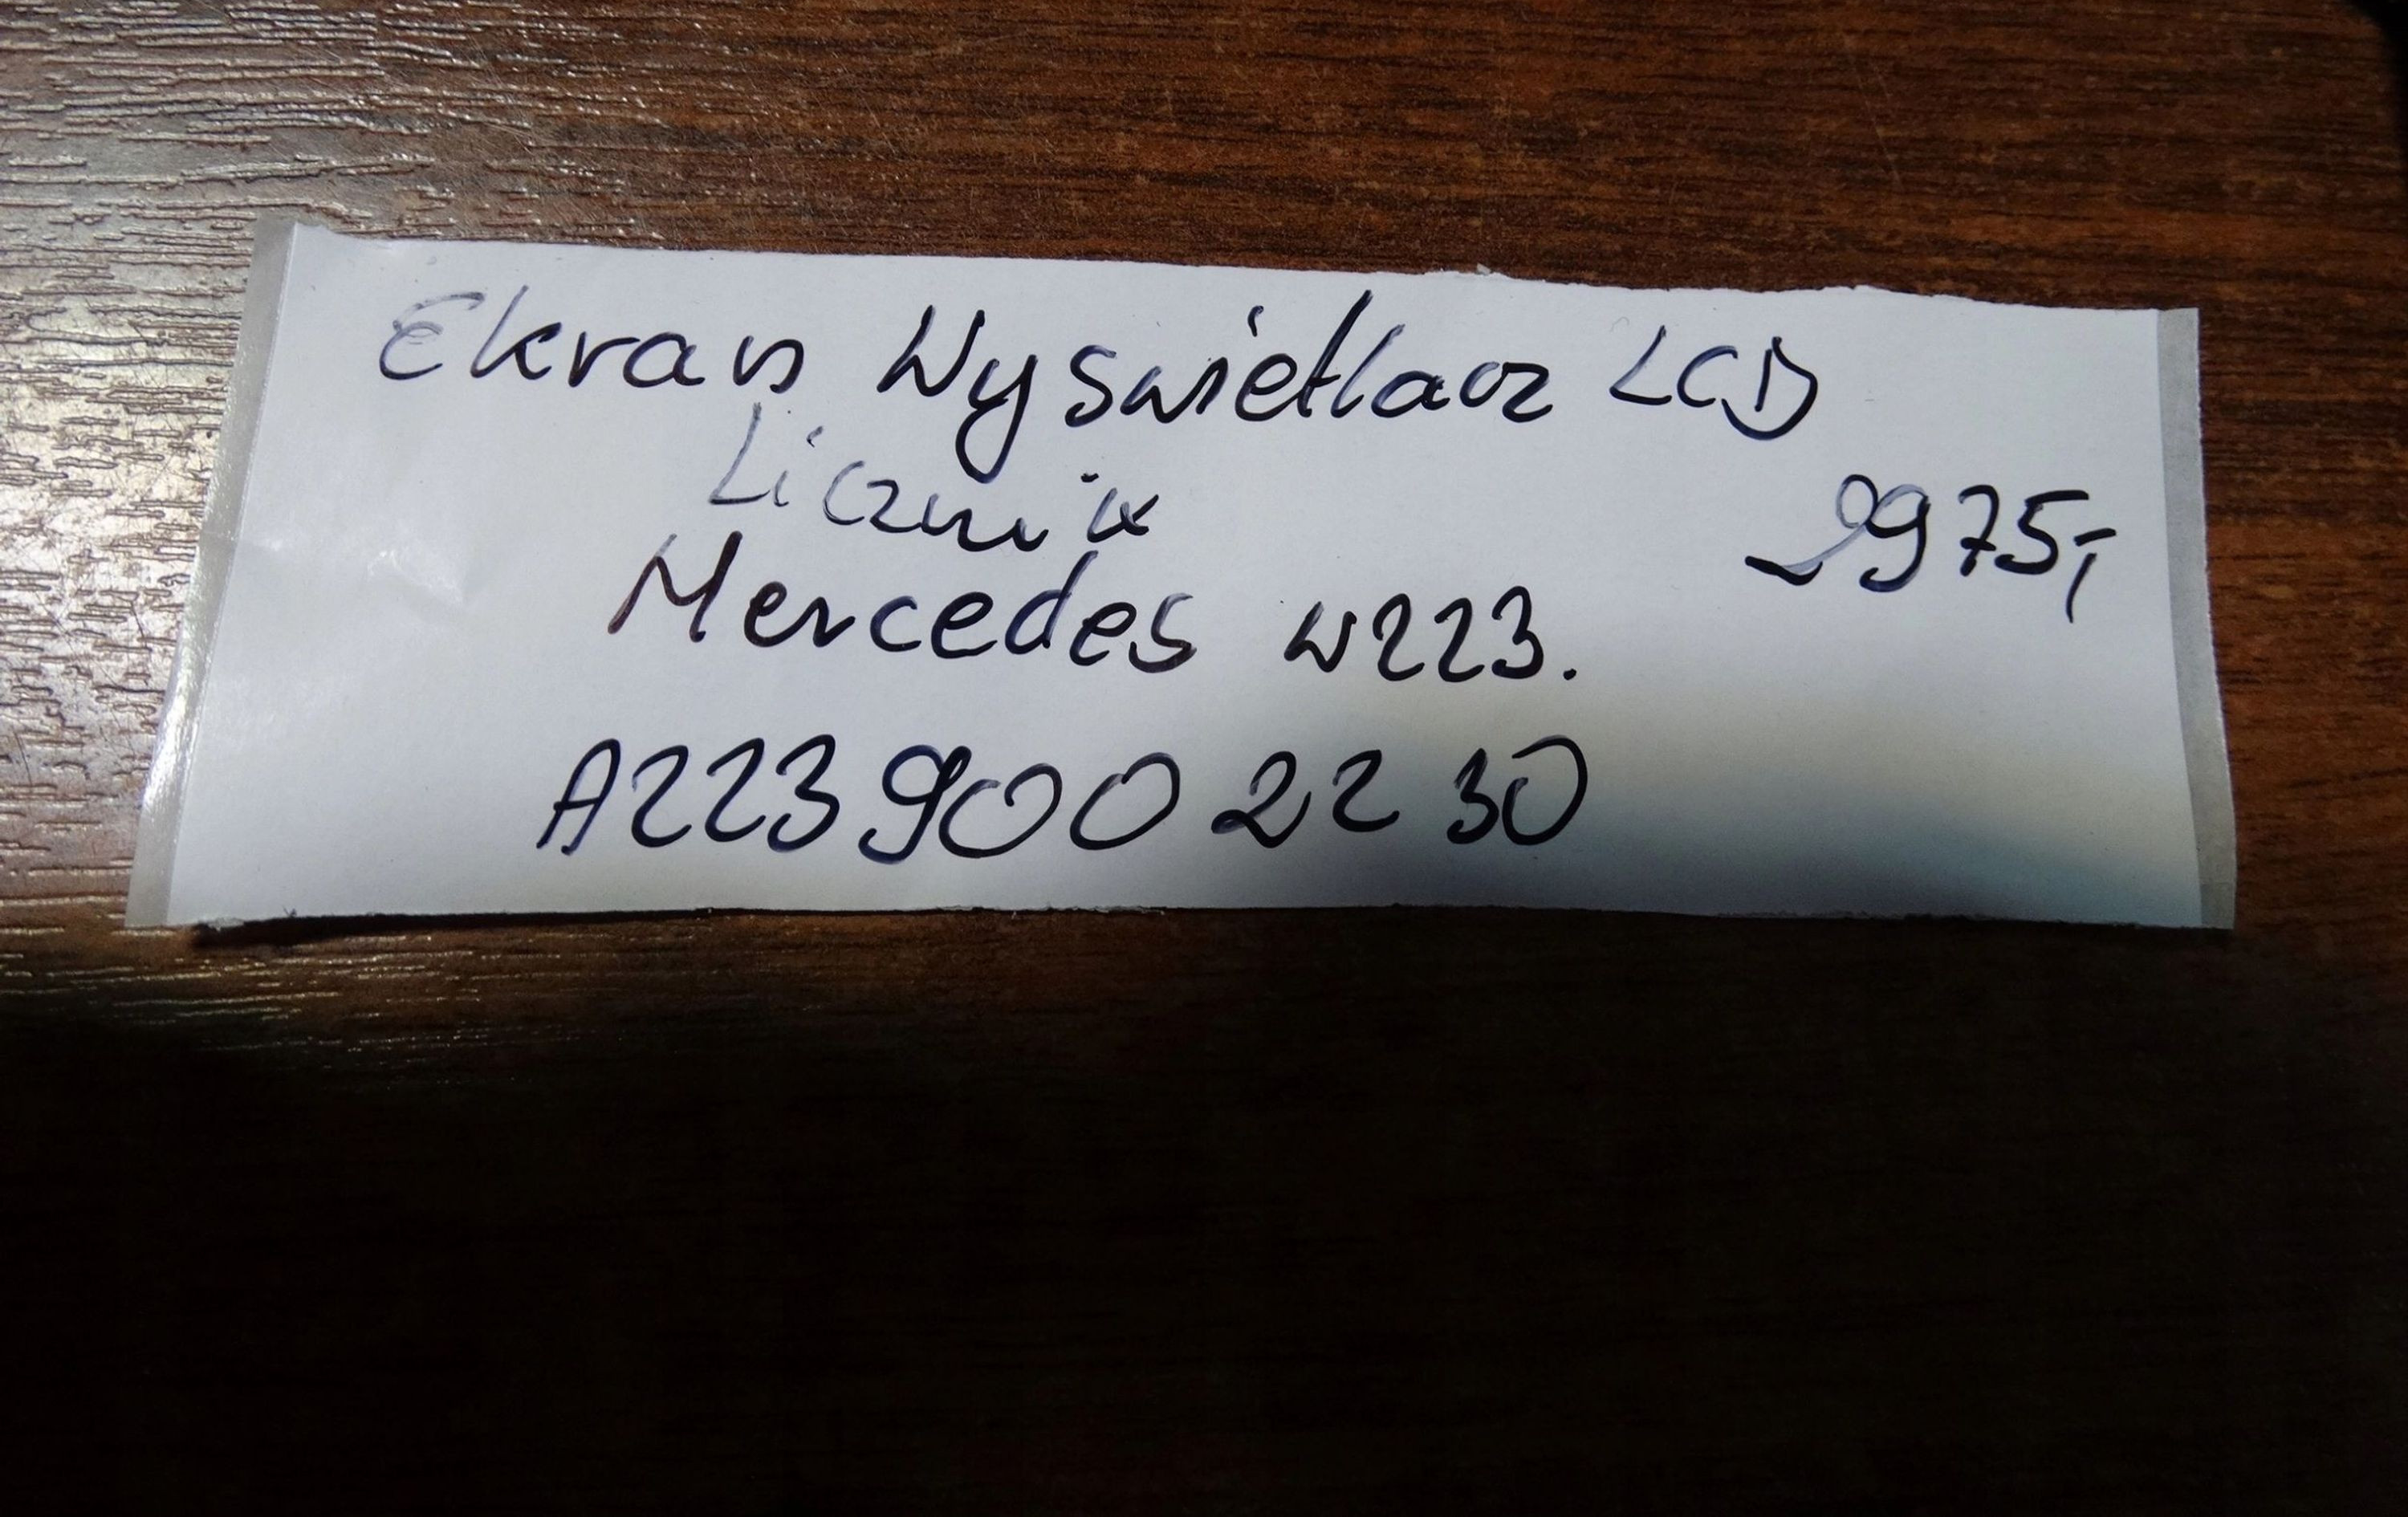 Ekran Wyswietlacz LCD
Licznik
2975,-
Mercedes W223.
A223 900 22 30